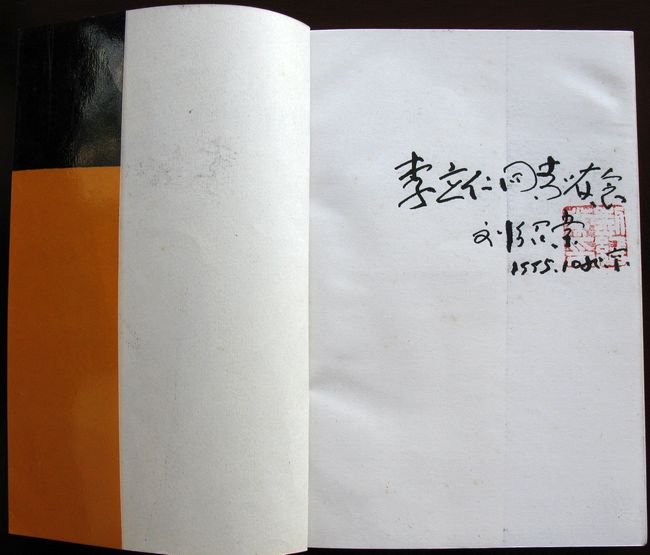 李立仁同志存念
刘绍棠
1995.10北京